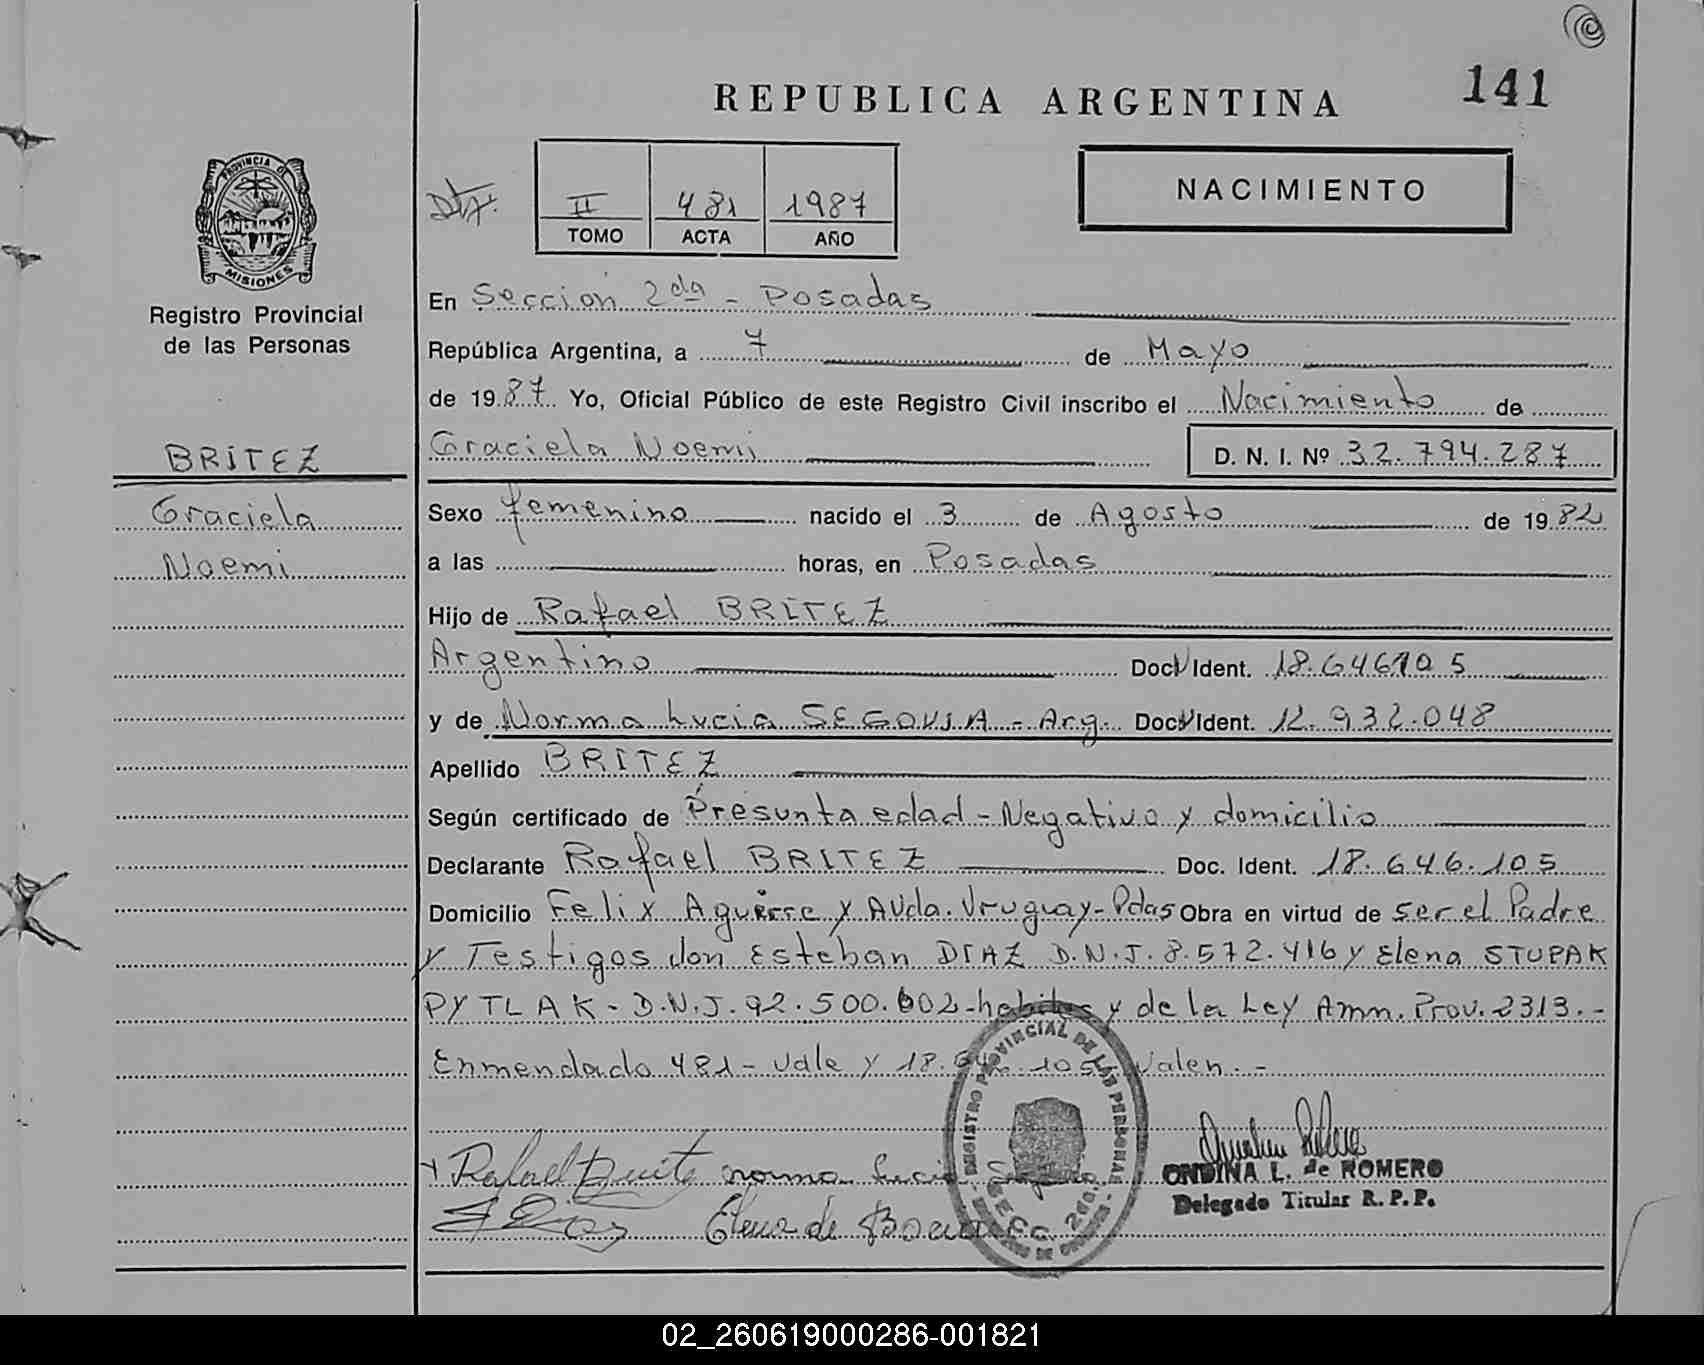 141
REPUBLICA ARGENTINA
II 481 1987
TOMO ACTA AÑO
NACIMIENTO
PROVINCIA DE
MISIONES
Registro Provincial
de las Personas
BRITEZ
Graciela
Noemi
En Sección 2da - Posadas
República Argentina, a 7 de Mayo
de 1987. Yo, Oficial Público de este Registro Civil inscribo el Nacimiento de
Graciela Noemi D. N. I. Nº 32.794.287
Sexo femenino nacido el 3 de Agosto de 1982
a las horas, en Posadas
Hijo de Rafael BRITEZ
Argentino Doc. Ident. 18.646105
y de Norma Lucia SEGOVIA - Arg. Doc. Ident. 12.932.048
Apellido BRITEZ
Según certificado de Presunta edad - Negativo y domicilio
Declarante Rafael BRITEZ Doc. Ident. 18.646.105
Domicilio Felix Aguirre y Avda. Uruguay - Pdas Obra en virtud de ser el Padre
y Testigos don Esteban DIAZ D.N.I. 8.572.416 y Elena STUPAK
PYTLAK - D.N.I. 92.500.602 - habiles y de la Ley Amn. Prov. 2313.-
Enmendado 481 - vale y 18.646.105 valen.-
Rafael Britez norma Lucia
Elena de
REGISTRO PROVINCIAL DE LAS PERSONAS
SECC. 2da.
ONDINA L. de ROMERO
Delegado Titular R. P. P.
02_260619000286-001821